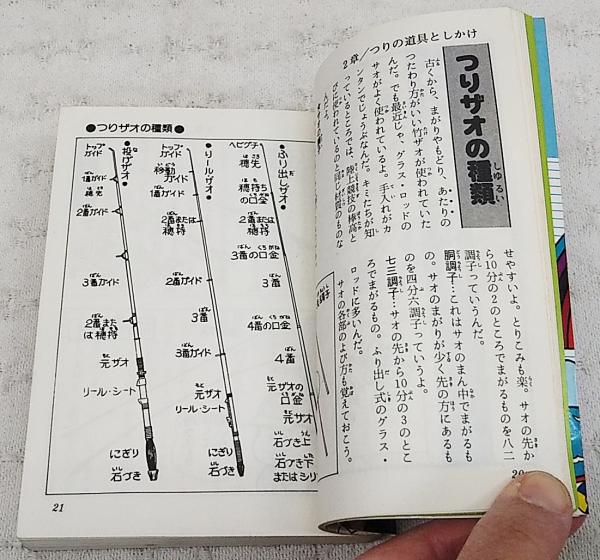 2章/つりの道具としかけ
つりザオの種類
しゅるい
古くから、まがりやもどり、あたりの
つたわり方がいい竹ザオが使われていた
んだ。でも最近じゃ、グラス・ロッドの
サオがよく使われているよ。手入れがカ
ンタンでじょうぶなんだ。キミたちが知
っているところでは、陸上競技の棒高と
びに使われているのと同じ材質のものな
せやすいよ。とりこみも楽。サオの先か
ら10分の2のところでまがるものを八二
調子っていうんだ。
胴調子…これはサオのまん中でまがるも
の。サオのまがりが少く先の方にあるも
のを四分六調子っていうよ。
七三調子…サオの先から10分の3のとこ
ろでまがるもの。ふり出し式のグラス・
ロッドに多いんだ。
サオの各部のよび方も覚えておこう。
20
●つりザオの種類●
ふり出しザオ●
ヘビグチ
穂先
穂持ち
の口金
3番の口金
3番
4番の口金
4番
元ザオの
口金
元ザオ
石づき上
石づき下
またはシリ
リールザオ●
トップ
ガイド
移動
ガイド
1番ガイド
2番または
穂持
2番ガイド
3番
3番ガイド
元ザオ
リール・シート
にぎり
石づき
●投げザオ●
トップ
ガイド
1番ガイド
穂先
2番ガイド
3番ガイド
2番また
は穂持
元ザオ
リール・シート
にぎり
石づき
21